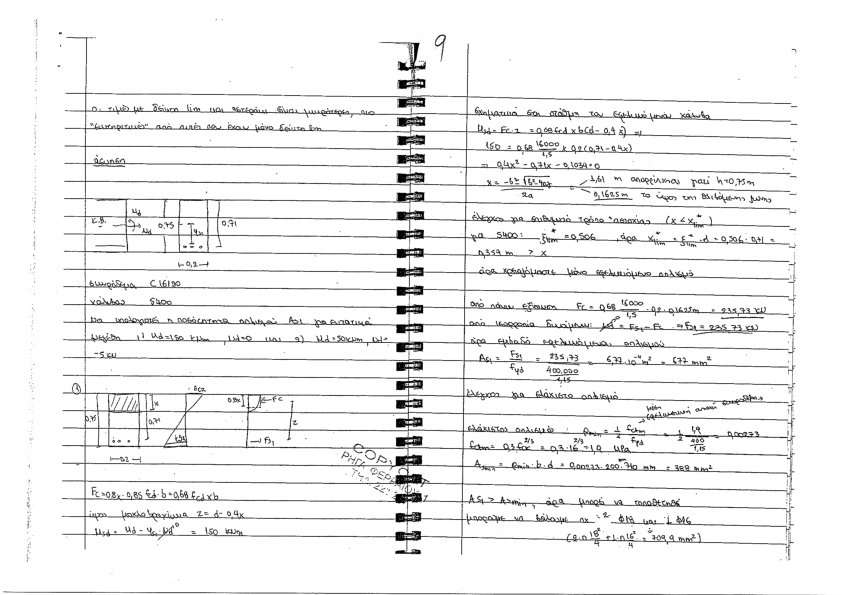 9
οι τιμές με δείκτη lim και αστεράκι είναι μικρότερες, πιο
"συντηρητικές" από αυτές που έχουν μόνο δείκτη lim
άσκηση
κ.β. Md Nd 0,75 ys1 0,71
0,2
σκυρόδεμα C16/20
χάλυβας S400
Να υπολογιστεί η ποσότητα οπλισμού As1 για εντατικά
μεγέθη 1) Md=150 kNm, Nd=0 και 2) Md=50kNm, Nd=
-5 kN
①
0,75 x 0,71 εc2 0,8x Fc z Fs1
0,2
Fc=0,8x·0,85 fcd·b=0,68 fcd xb
z=d-0,4x
Msd = Md - ys1·Nd = 150 kNm
COPY
ΡΗΓΑ ΦΕΡΑΙΟΥ
ΤΗΛ.
στη στάθμη του εφελκυόμενου χάλυβα
Msd = Fc·z = 0,68 fcd x b(d-0,4x) ⇒
150 = 0,68 16000/1,5 x 0,2(0,71-0,4x)
⇒ 0,4x² - 0,71x - 0,1034=0
x = -b± √b²-4αγ / 2α = 1,61 m απορρίπτεται γιατί h=0,75m
0,1625m το ύψος της θλιβόμενης ζώνης
έλεγχος για επιθυμητό τρόπο αστοχίας (x < x*lim)
για S400: ξ*lim =0,506, άρα x*lim = ξ*lim·d = 0,506·0,71 =
0,359 m > x
άρα χρειαζόμαστε μόνο εφελκυόμενο οπλισμό
από πάνω εξίσωση Fc = 0,68 16000/1,5 ·0,2·0,1625m = 235,73 kN
από ισορροπία δυνάμεων: Nd = Fs1-Fc ⇒ Fs1 = 235,73 kN
άρα εμβαδό εφελκυόμενου οπλισμού
As1 = Fs1/fyd = 235,73 / 400.000/1,15 = 6,77·10⁻⁴ m² = 677 mm²
έλεγχος για ελάχιστο οπλισμό
μέση εφελκυστική αντοχή σκυροδέματος
ελάχιστος οπλισμός: ρmin = 1/2 fctm/fyd = 1/2 1,9 / 400/1,15 = 0,00273
fctm= 0,3 fck^2/3 = 0,3·16^2/3 = 1,9 MPa
Asmin = ρmin·b·d = 0,00273·200·710 mm = 388 mm²
As1 > Asmin, άρα μπορεί να τοποθετηθεί
μπορούμε να βάλουμε πχ 2 Φ18 και 1 Φ16
(2·π 18²/4 + 1·π 16²/4 = 709,9 mm²)